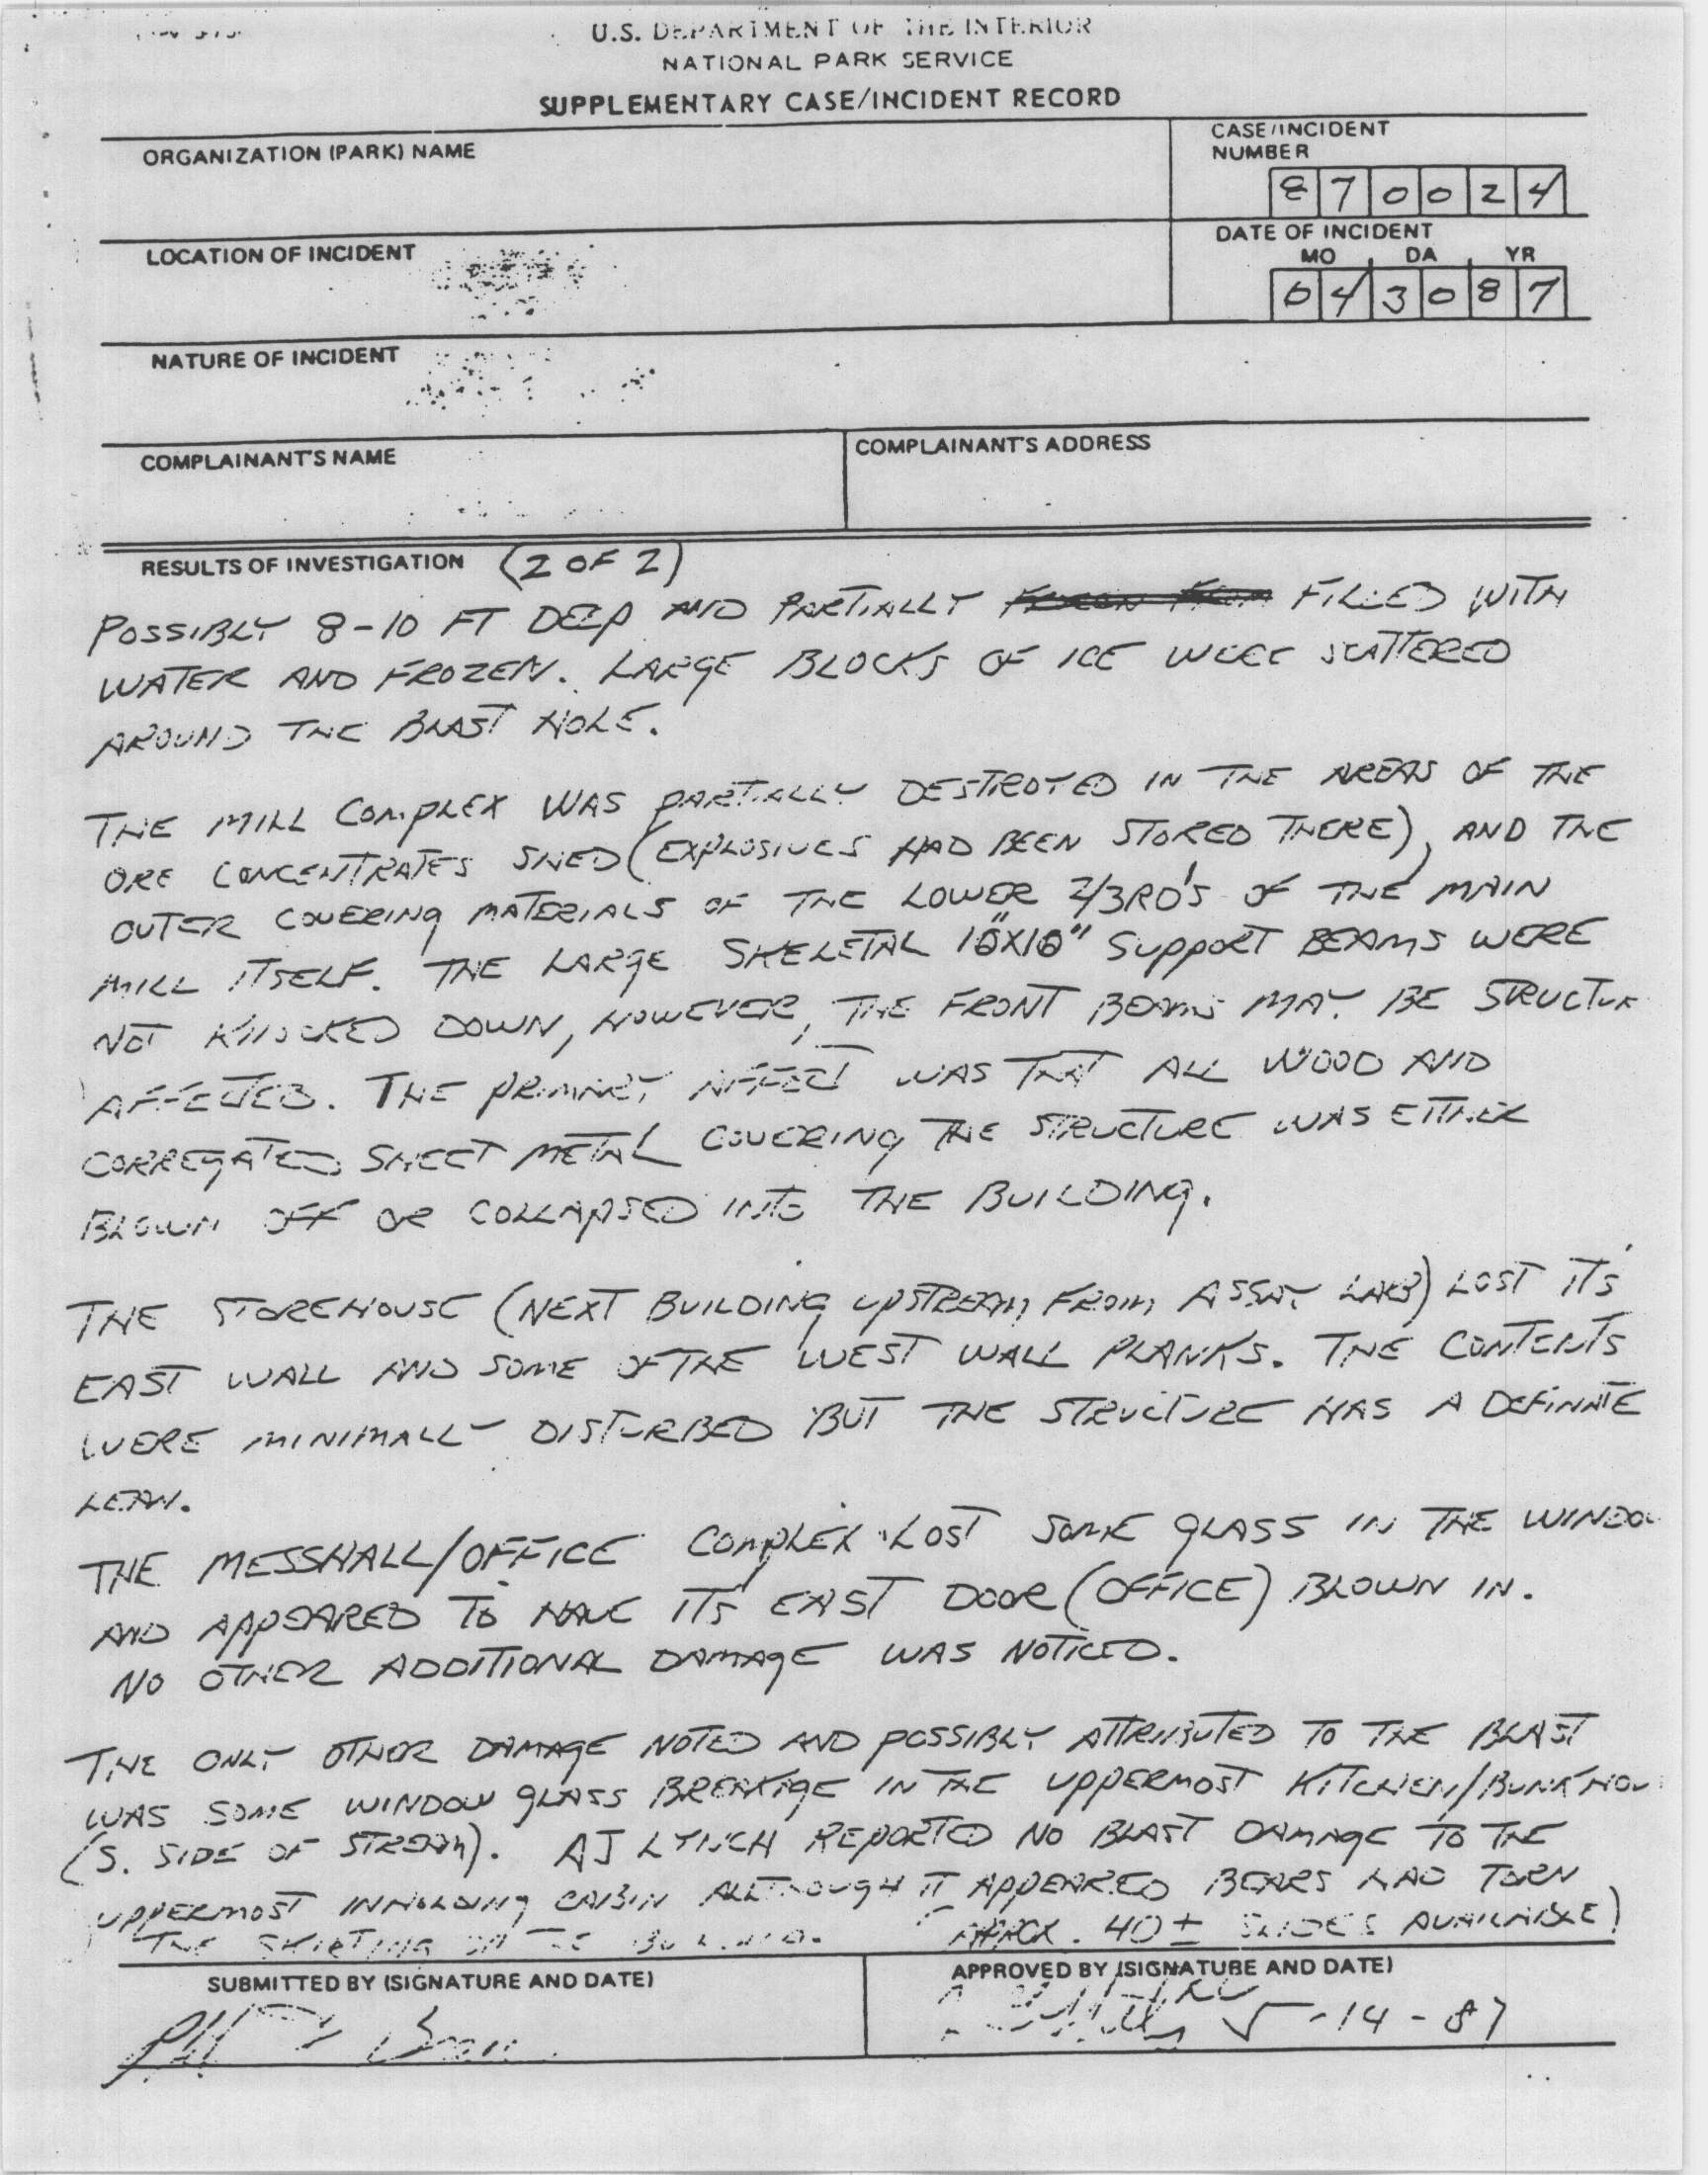 U.S. DEPARTMENT OF THE INTERIOR
NATIONAL PARK SERVICE
SUPPLEMENTARY CASE/INCIDENT RECORD
ORGANIZATION (PARK) NAME
CASE/INCIDENT
NUMBER
8 7 0 0 2 4
LOCATION OF INCIDENT
DATE OF INCIDENT
MO DA YR
0 4 3 0 8 7
NATURE OF INCIDENT
COMPLAINANT'S NAME
COMPLAINANT'S ADDRESS
RESULTS OF INVESTIGATION (2 OF 2)
POSSIBLY 8-10 FT DEEP AND PARTIALLY FILLED WITH
WATER AND FROZEN. LARGE BLOCKS OF ICE WERE SCATTERED
AROUND THE BLAST HOLE.
THE MILL COMPLEX WAS PARTIALLY DESTROYED IN THE AREAS OF THE
ORE CONCENTRATES SHED (EXPLOSIVES HAD BEEN STORED THERE), AND THE
OUTER COVERING MATERIALS OF THE LOWER 2/3RD'S OF THE MAIN
MILL ITSELF. THE LARGE SKELETAL 10"X10" SUPPORT BEAMS WERE
NOT KNOCKED DOWN, HOWEVER, THE FRONT BEAMS MAY BE STRUCTUR
AFFECTED. THE PRIMARY AFFECT WAS THAT ALL WOOD AND
CORREGATED SHEET METAL COVERING THE STRUCTURE WAS EITHER
BLOWN OFF OR COLLAPSED INTO THE BUILDING.
THE STOREHOUSE (NEXT BUILDING UPSTREAM FROM ASSAY LAB) LOST IT'S
EAST WALL AND SOME OF THE WEST WALL PLANKS. THE CONTENTS
WERE MINIMALLY DISTURBED BUT THE STRUCTURE HAS A DEFINATE
LEAN.
THE MESSHALL/OFFICE COMPLEX LOST SOME GLASS IN THE WINDO
AND APPEARED TO HAVE IT'S EAST DOOR (OFFICE) BLOWN IN.
NO OTHER ADDITIONAL DAMAGE WAS NOTICED.
THE ONLY OTHER DAMAGE NOTED AND POSSIBLY ATTRIBUTED TO THE BLAST
WAS SOME WINDOW GLASS BREAKAGE IN THE UPPERMOST KITCHEN/BUNKHOU
(S. SIDE OF STREAM). AJ LYNCH REPORTED NO BLAST DAMAGE TO THE
UPPERMOST INHOLDING CABIN ALTHOUGH IT APPEARED BEARS HAD TORN
THE SKIRTING ON THE BUILDING. (APPROX. 40± SLIDES AVAILABLE)
SUBMITTED BY (SIGNATURE AND DATE)
APPROVED BY (SIGNATURE AND DATE)
5-14-87